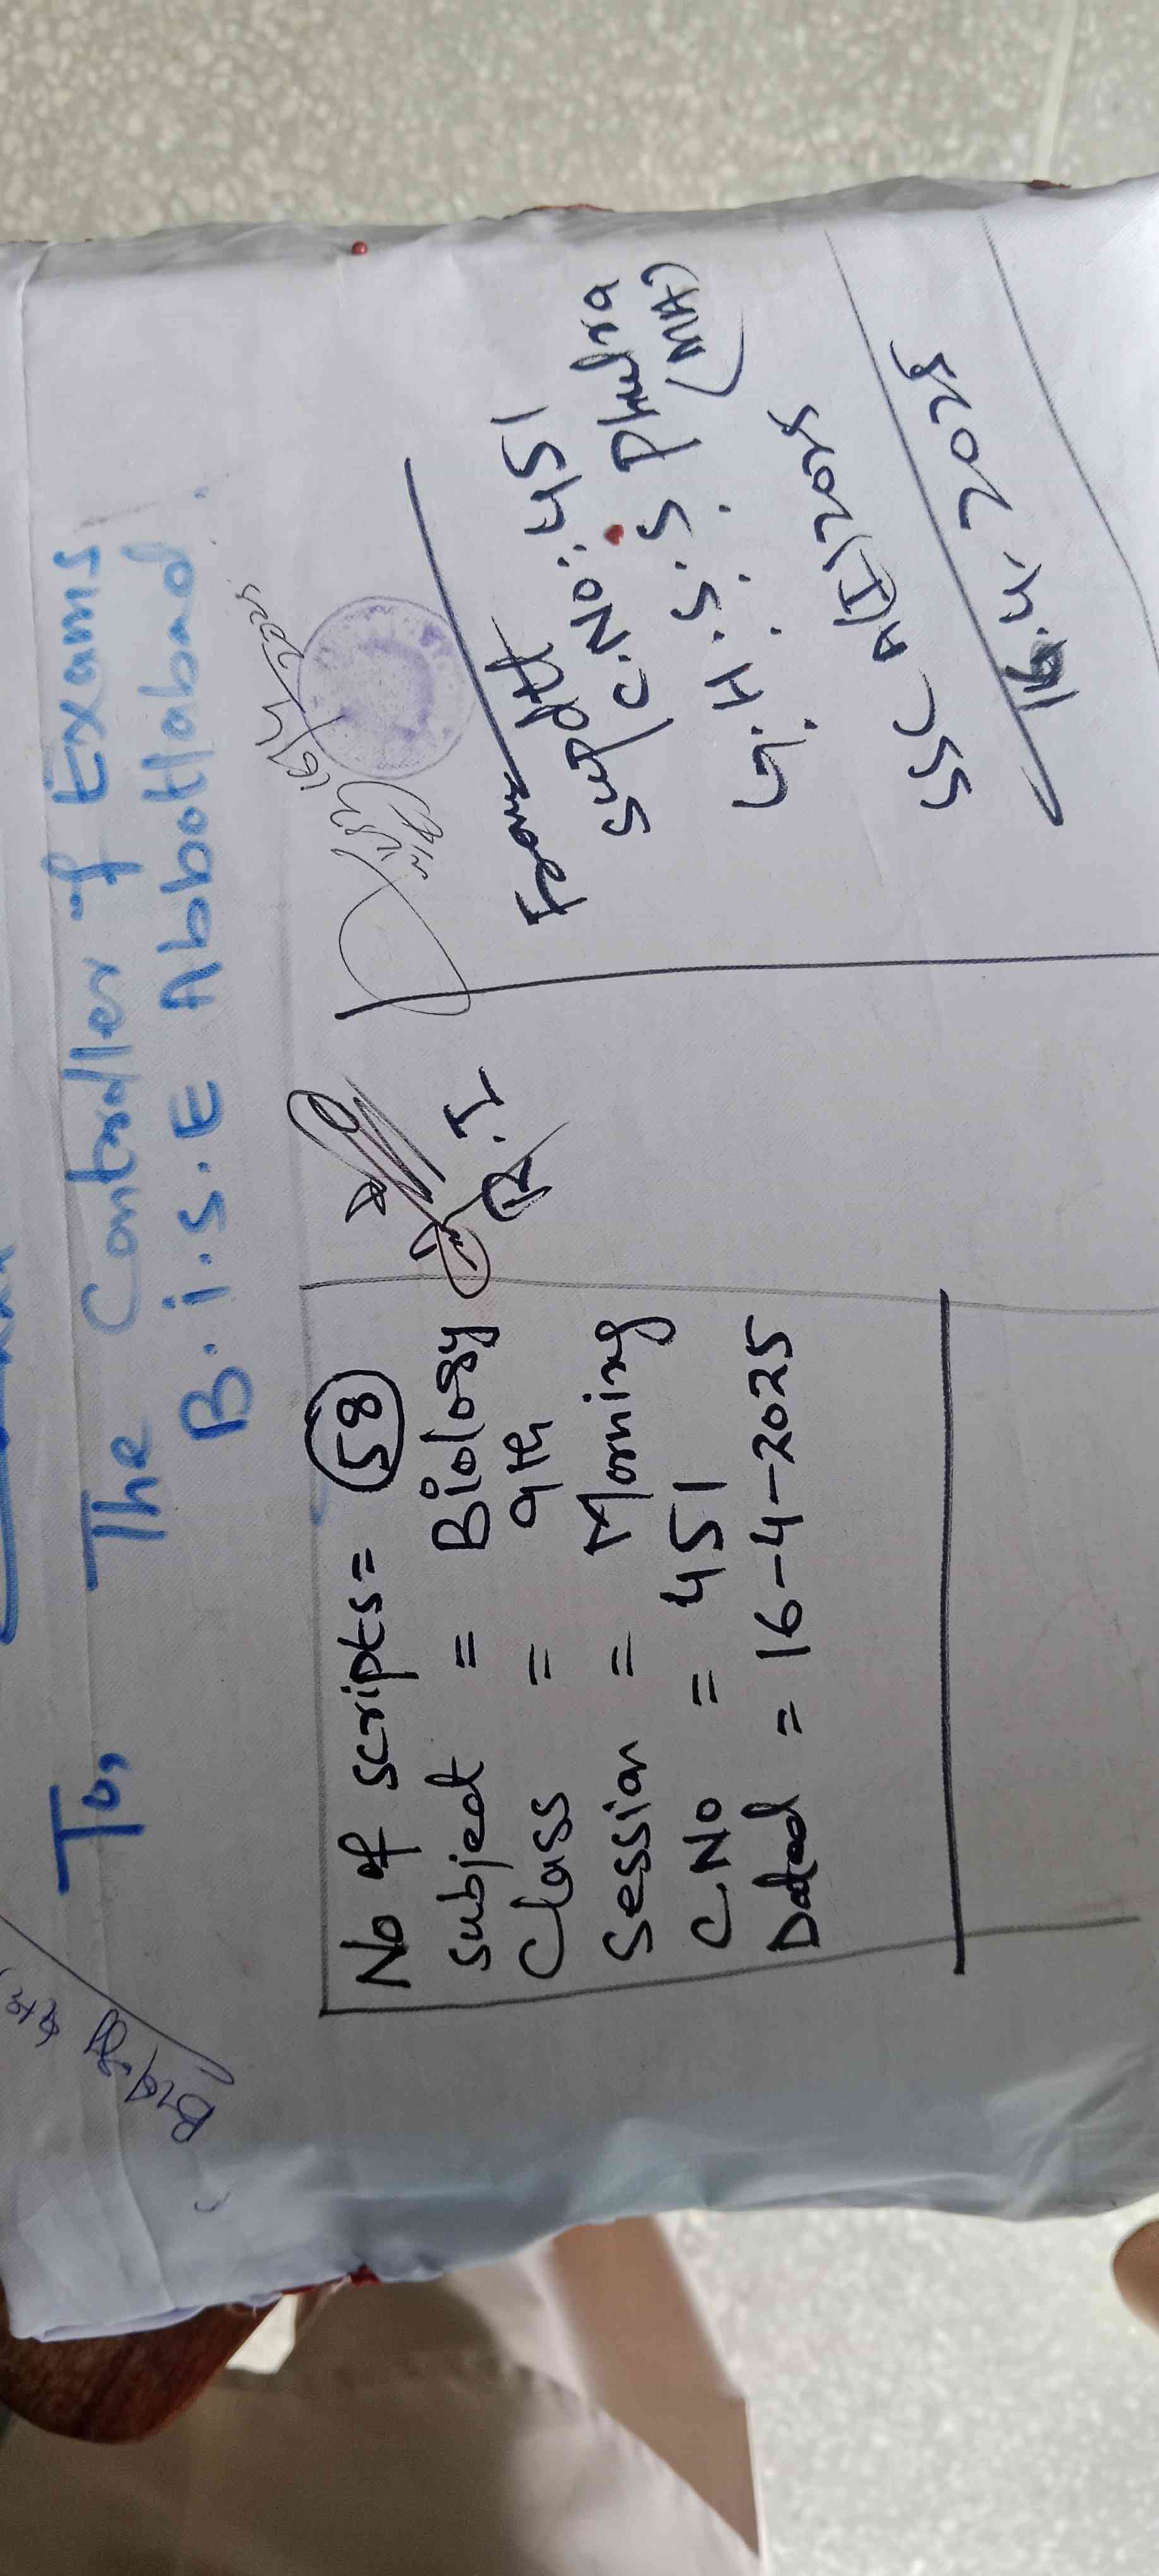 To,
The Controller of Exams
B.i.S.E Abbottabad
No of scripts= 58
Subject = Biology
Class = 9th
Session = Morning
C.No = 451
Dated = 16-4-2025
R.I
16/4/2025
From
Supdtt
C.No: 451
G.H.S.S Phulra
(MA)
SSC A(I) 2025
16.4.2025